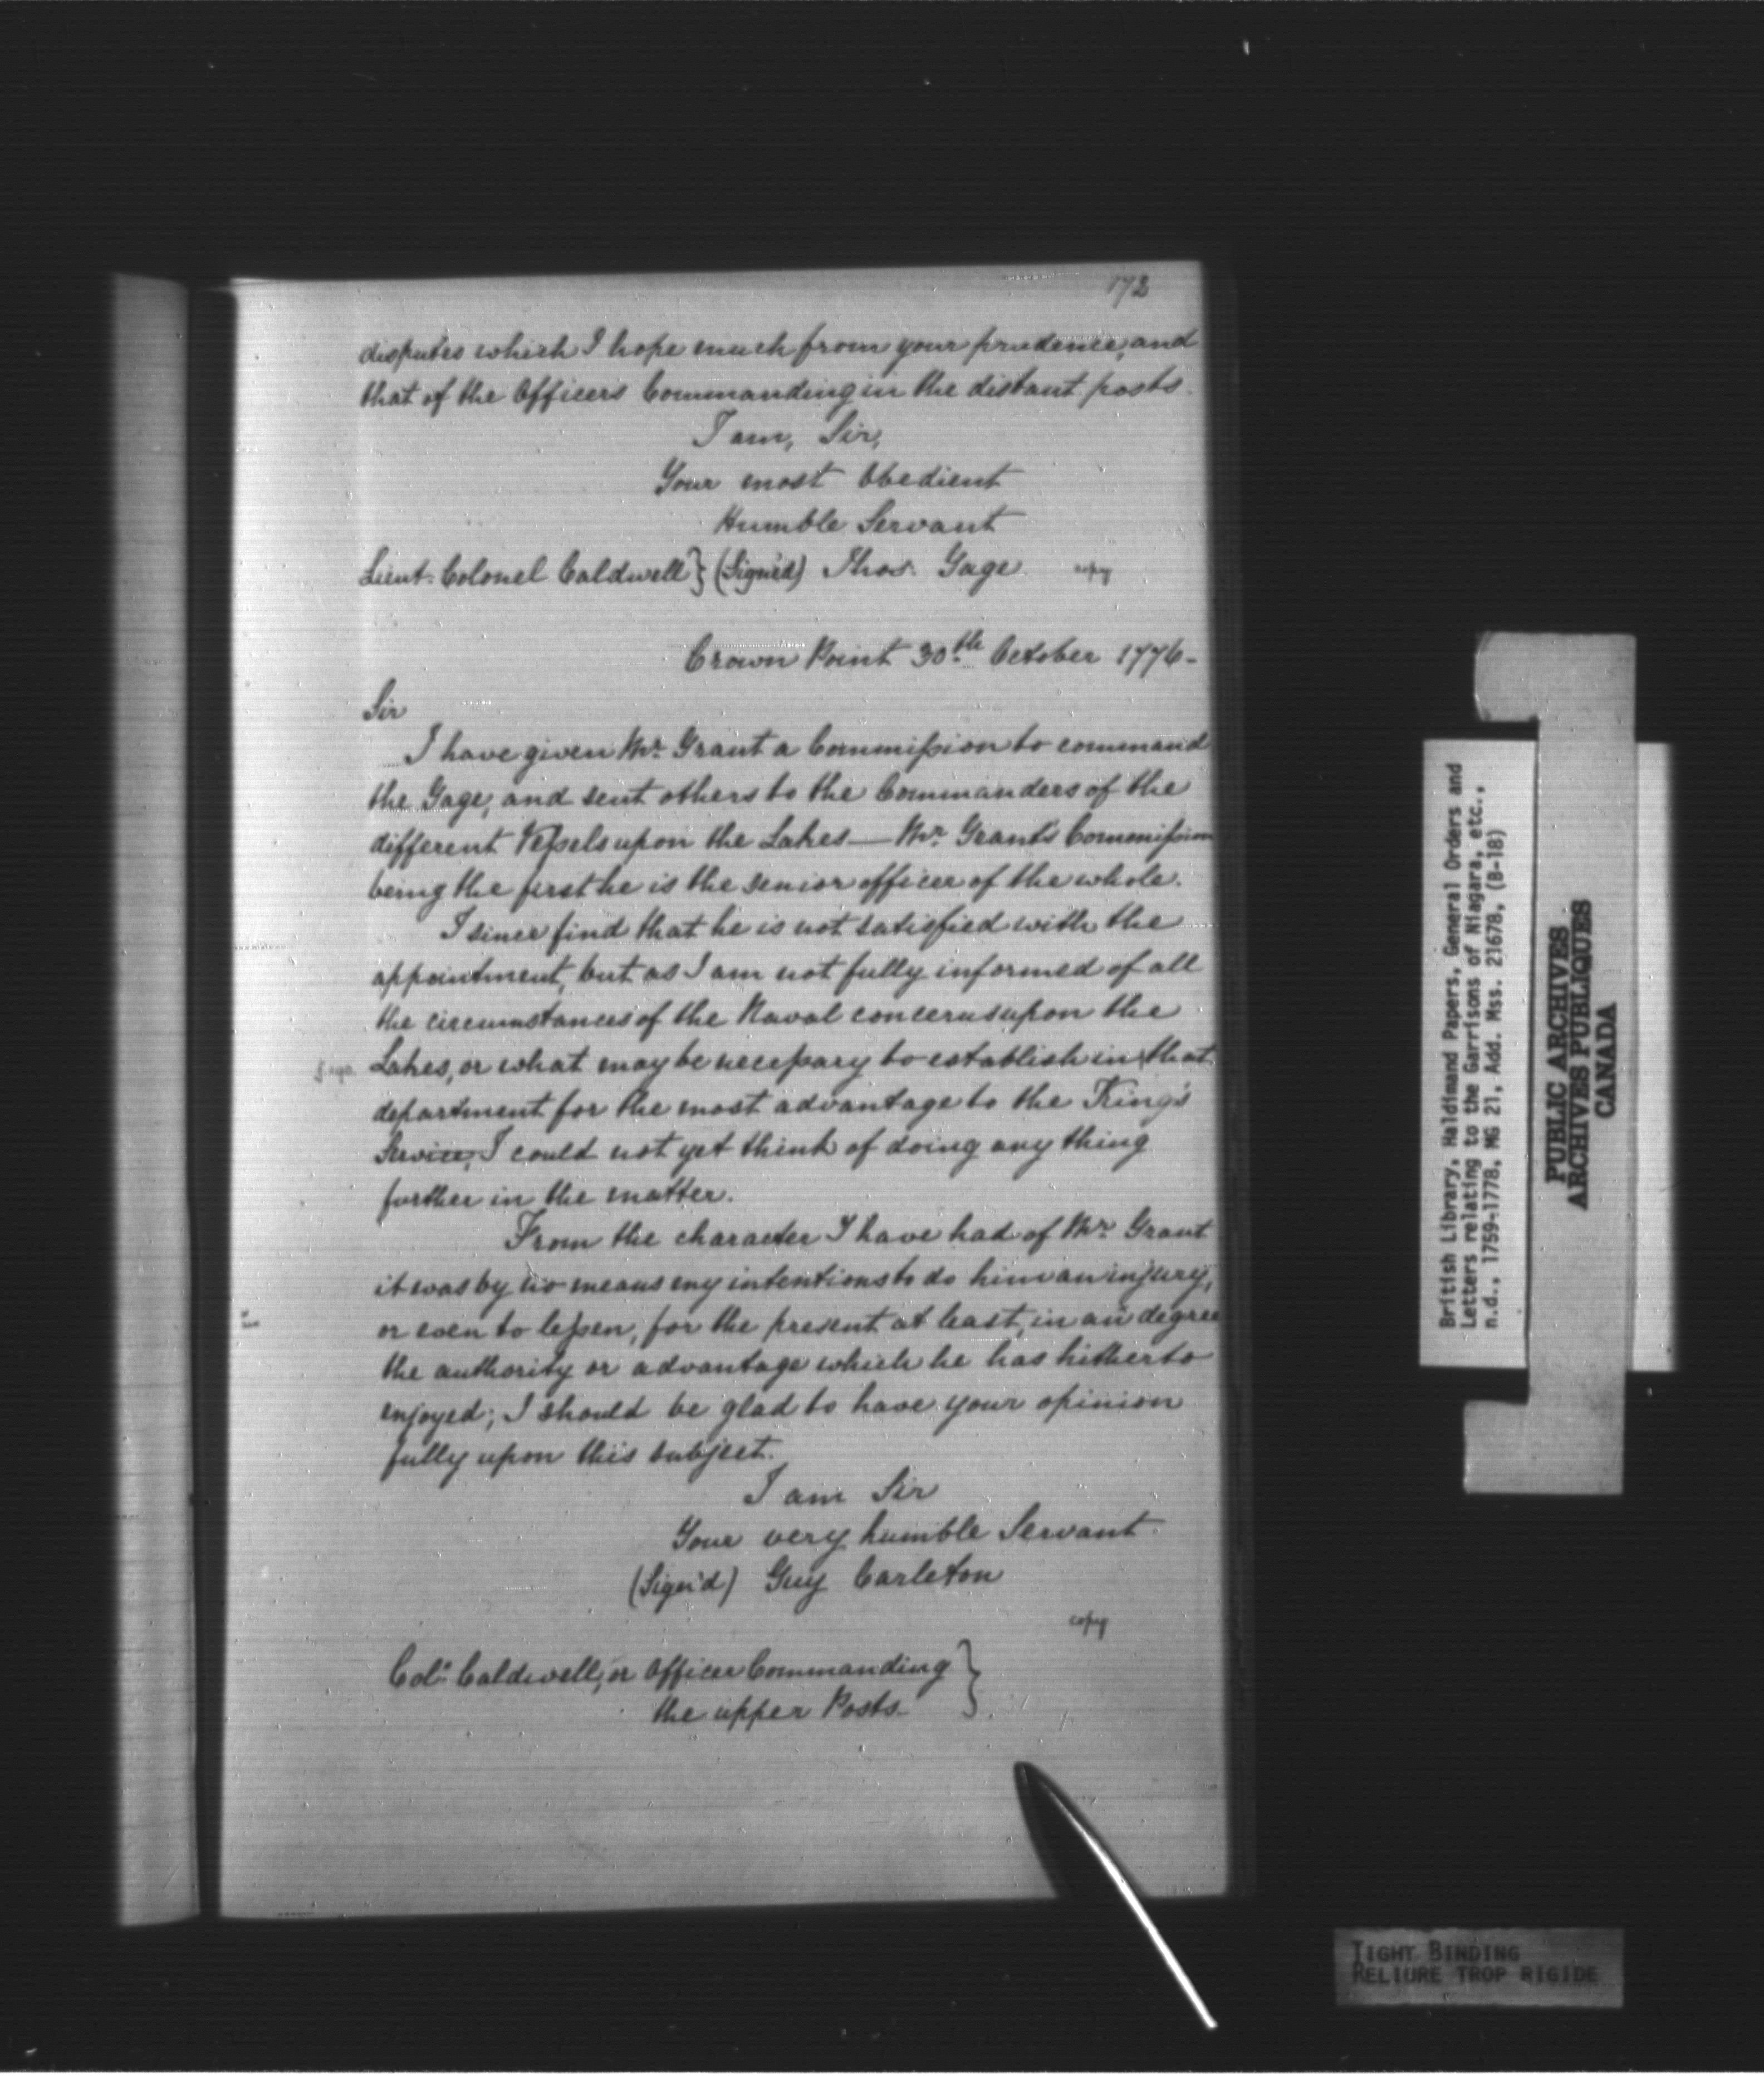 172
disputes which I hope much from your prudence, and
that of the Officers Commanding in the distant posts.
I am, Sir,
Your most Obedient
Humble Servant
Lieut: Colonel Caldwell } (Sign'd) Thos: Gage
copy
Crown Point 30th October 1776-
Sir
I have given Mr. Grant a Commission to command
the Gage, and sent others to the Commanders of the
different Vessels upon the Lakes — Mr. Grant's Commission
being the first he is the senior officer of the whole.
I since find that he is not satisfied with the
appointment, but as I am not fully informed of all
the circumstances of the Naval concerns upon the
Lakes, or what may be necessary to establish in that
department for the most advantage to the King's
Service, I could not yet think of doing any thing
further in the matter.
From the character I have had of Mr. Grant
it was by no means my intentions to do him an injury,
or even to lessen, for the present at least, in an degree
the authority or advantage which he has hitherto
enjoyed; I should be glad to have your opinion
fully upon this subject.
I am Sir
Your very humble Servant
(Sign'd) Guy Carleton
copy
Col: Caldwell, or Officer Commanding }
the upper Posts.
British Library, Haldimand Papers, General Orders and
Letters relating to the Garrisons of Niagara, etc.,
n.d., 1759-1778, MG 21, Add. Mss. 21678, (B-18)
PUBLIC ARCHIVES
ARCHIVES PUBLIQUES
CANADA
TIGHT BINDING
RELIURE TROP RIGIDE